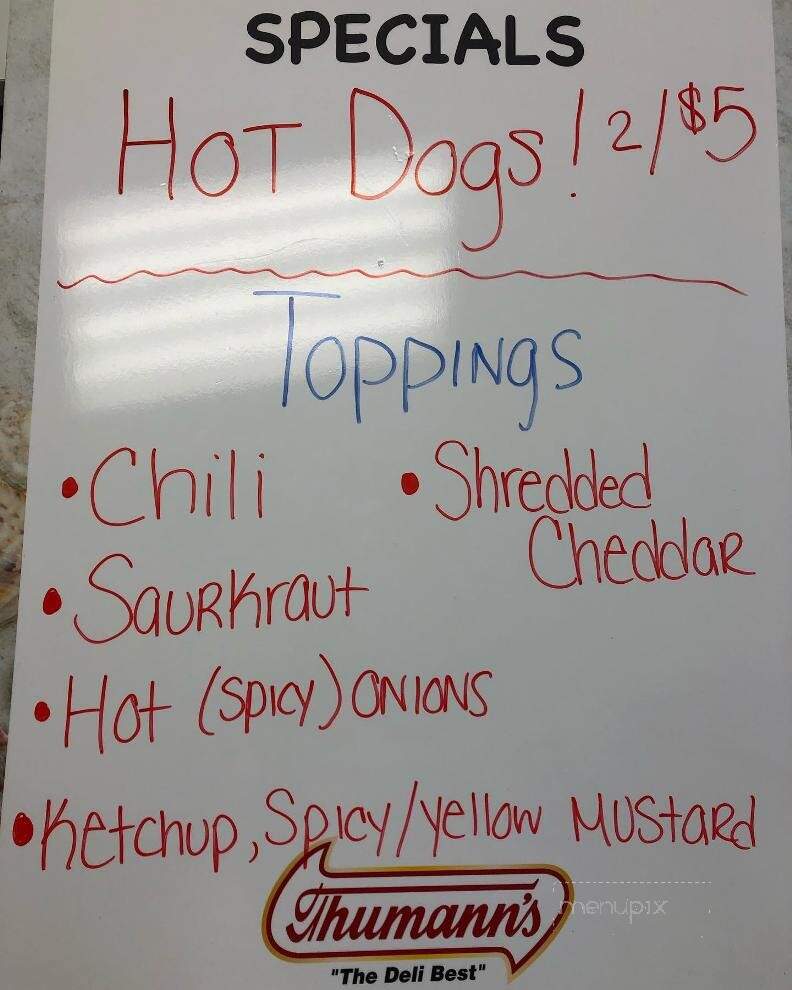 SPECIALS
HOT Dogs! 2/$5
Toppings
• Chili
• Shredded
Cheddar
• Saurkraut
• Hot (Spicy) ONIONS
• Ketchup, Spicy/yellow MUSTARD
Thumann's
menupix
"The Deli Best"